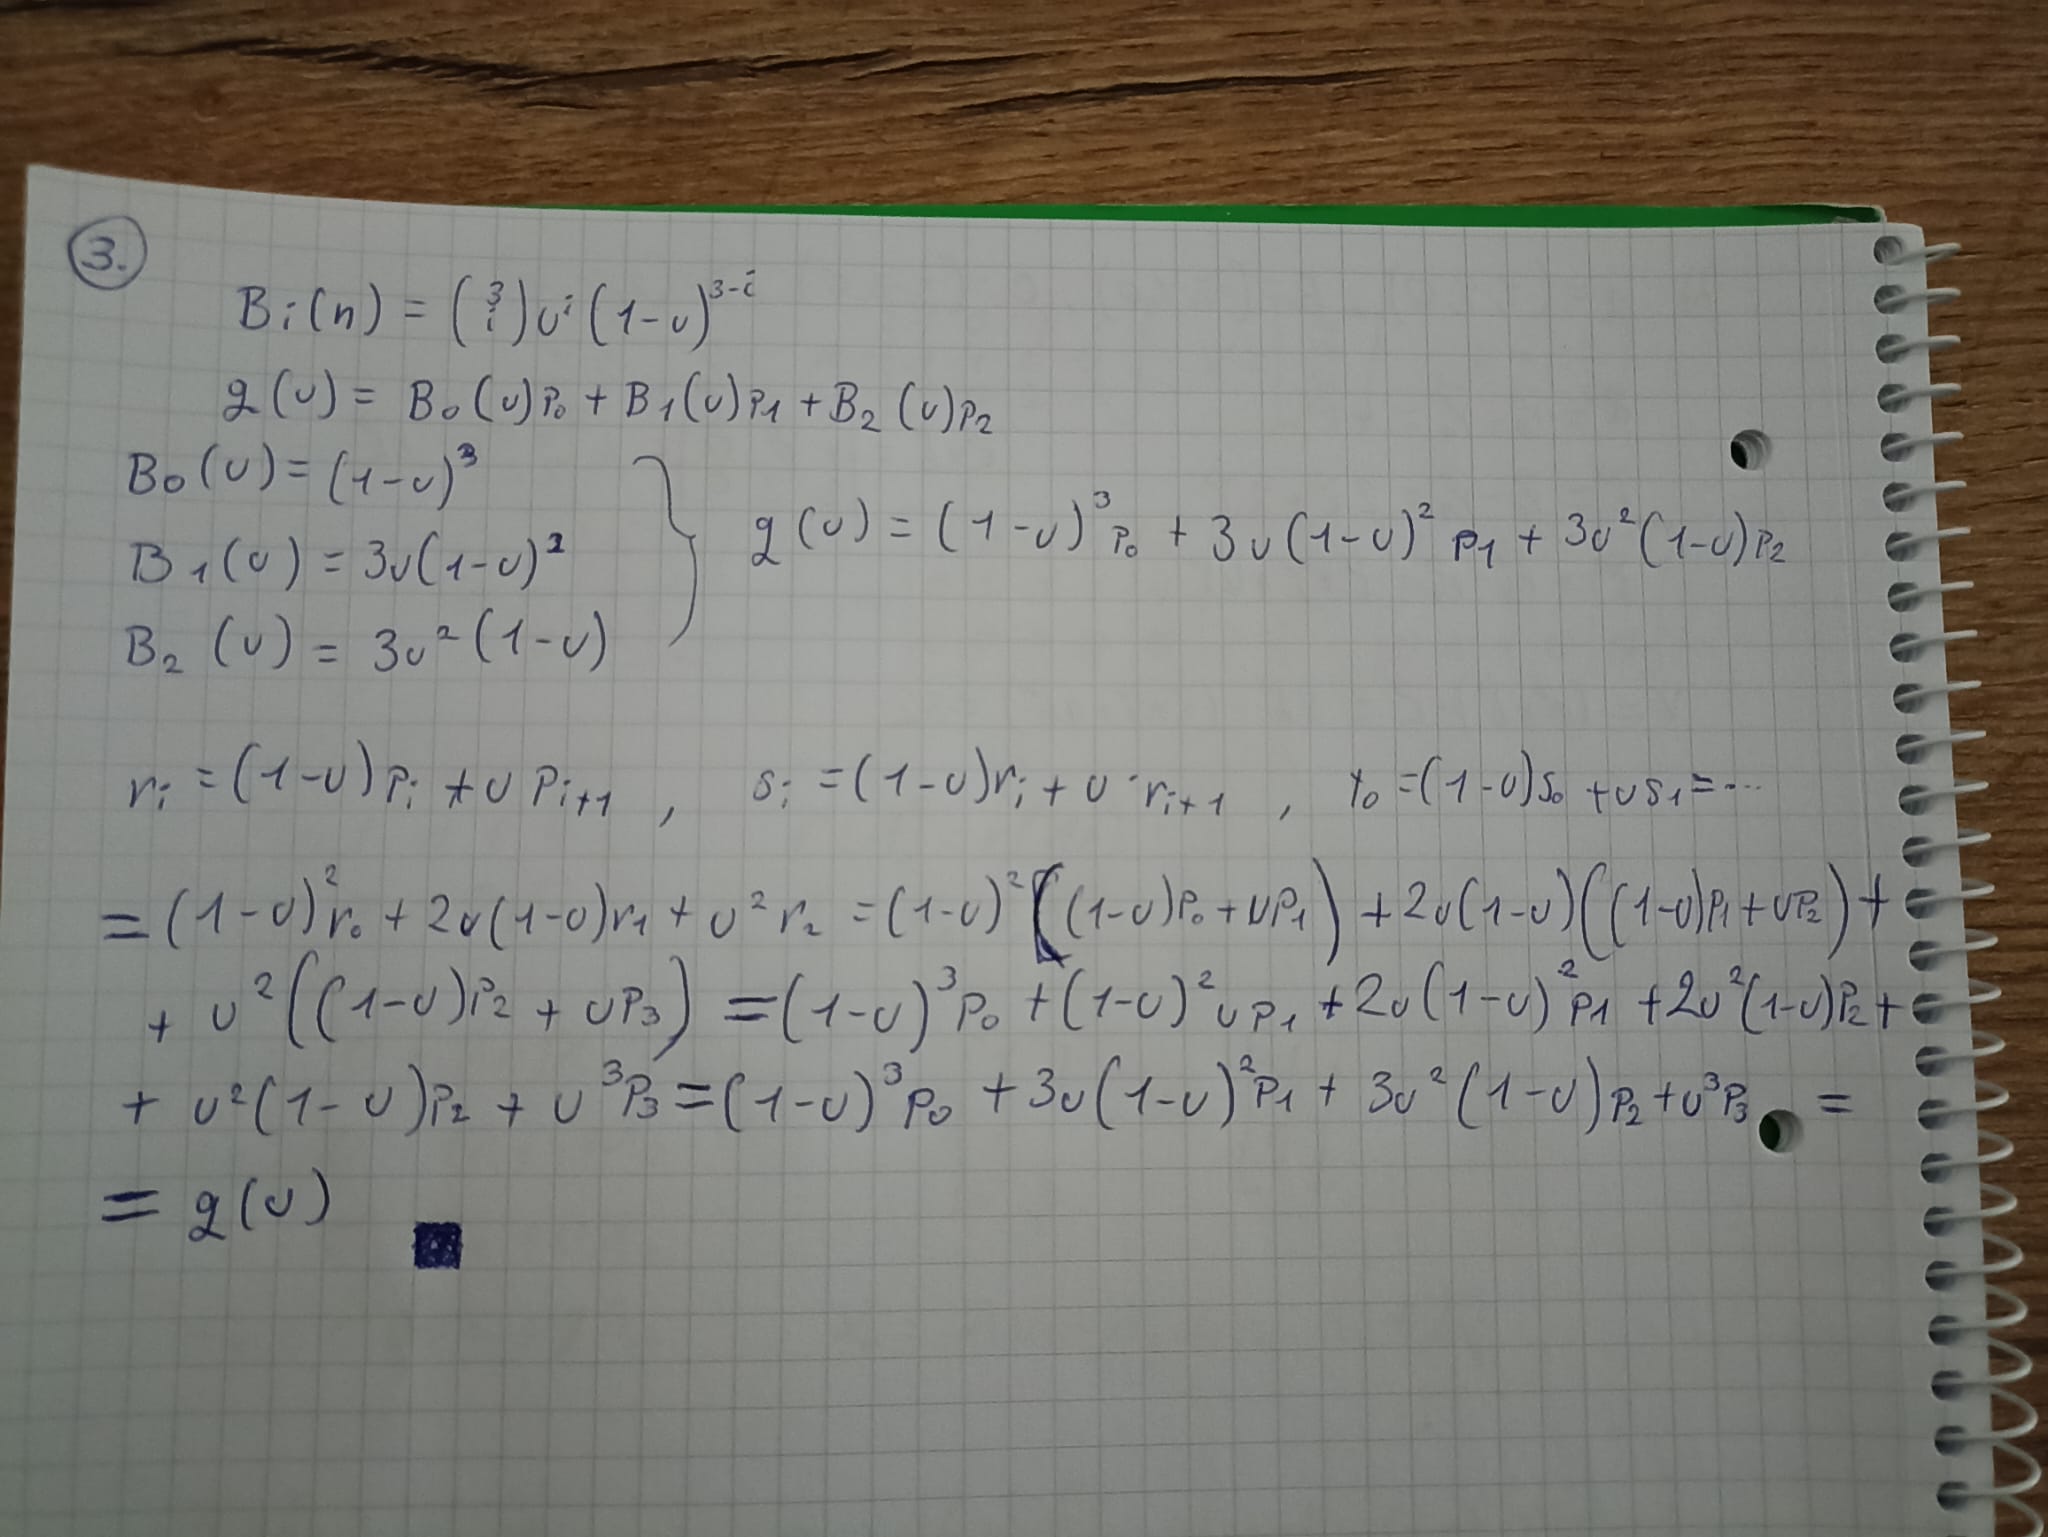 3.
Bi(n) = (3 i) uⁱ (1-u)³⁻ⁱ
g(u) = B₀(u)P₀ + B₁(u)P₁ + B₂(u)P₂
B₀(u) = (1-u)³
B₁(u) = 3u(1-u)²
B₂(u) = 3u²(1-u)
g(u) = (1-u)³P₀ + 3u(1-u)²P₁ + 3u²(1-u)P₂
rᵢ = (1-u)Pᵢ + uPᵢ₊₁ , sᵢ = (1-u)rᵢ + u·rᵢ₊₁ , t₀ = (1-u)s₀ + us₁ = ...
= (1-u)²r₀ + 2u(1-u)r₁ + u²r₂ = (1-u)²((1-u)P₀ + uP₁) + 2u(1-u)((1-u)P₁ + uP₂) +
+ u²((1-u)P₂ + uP₃) = (1-u)³P₀ + (1-u)²uP₁ + 2u(1-u)²P₁ + 2u²(1-u)P₂ +
+ u²(1-u)P₂ + u³P₃ = (1-u)³P₀ + 3u(1-u)²P₁ + 3u²(1-u)P₂ + u³P₃ =
= g(u)